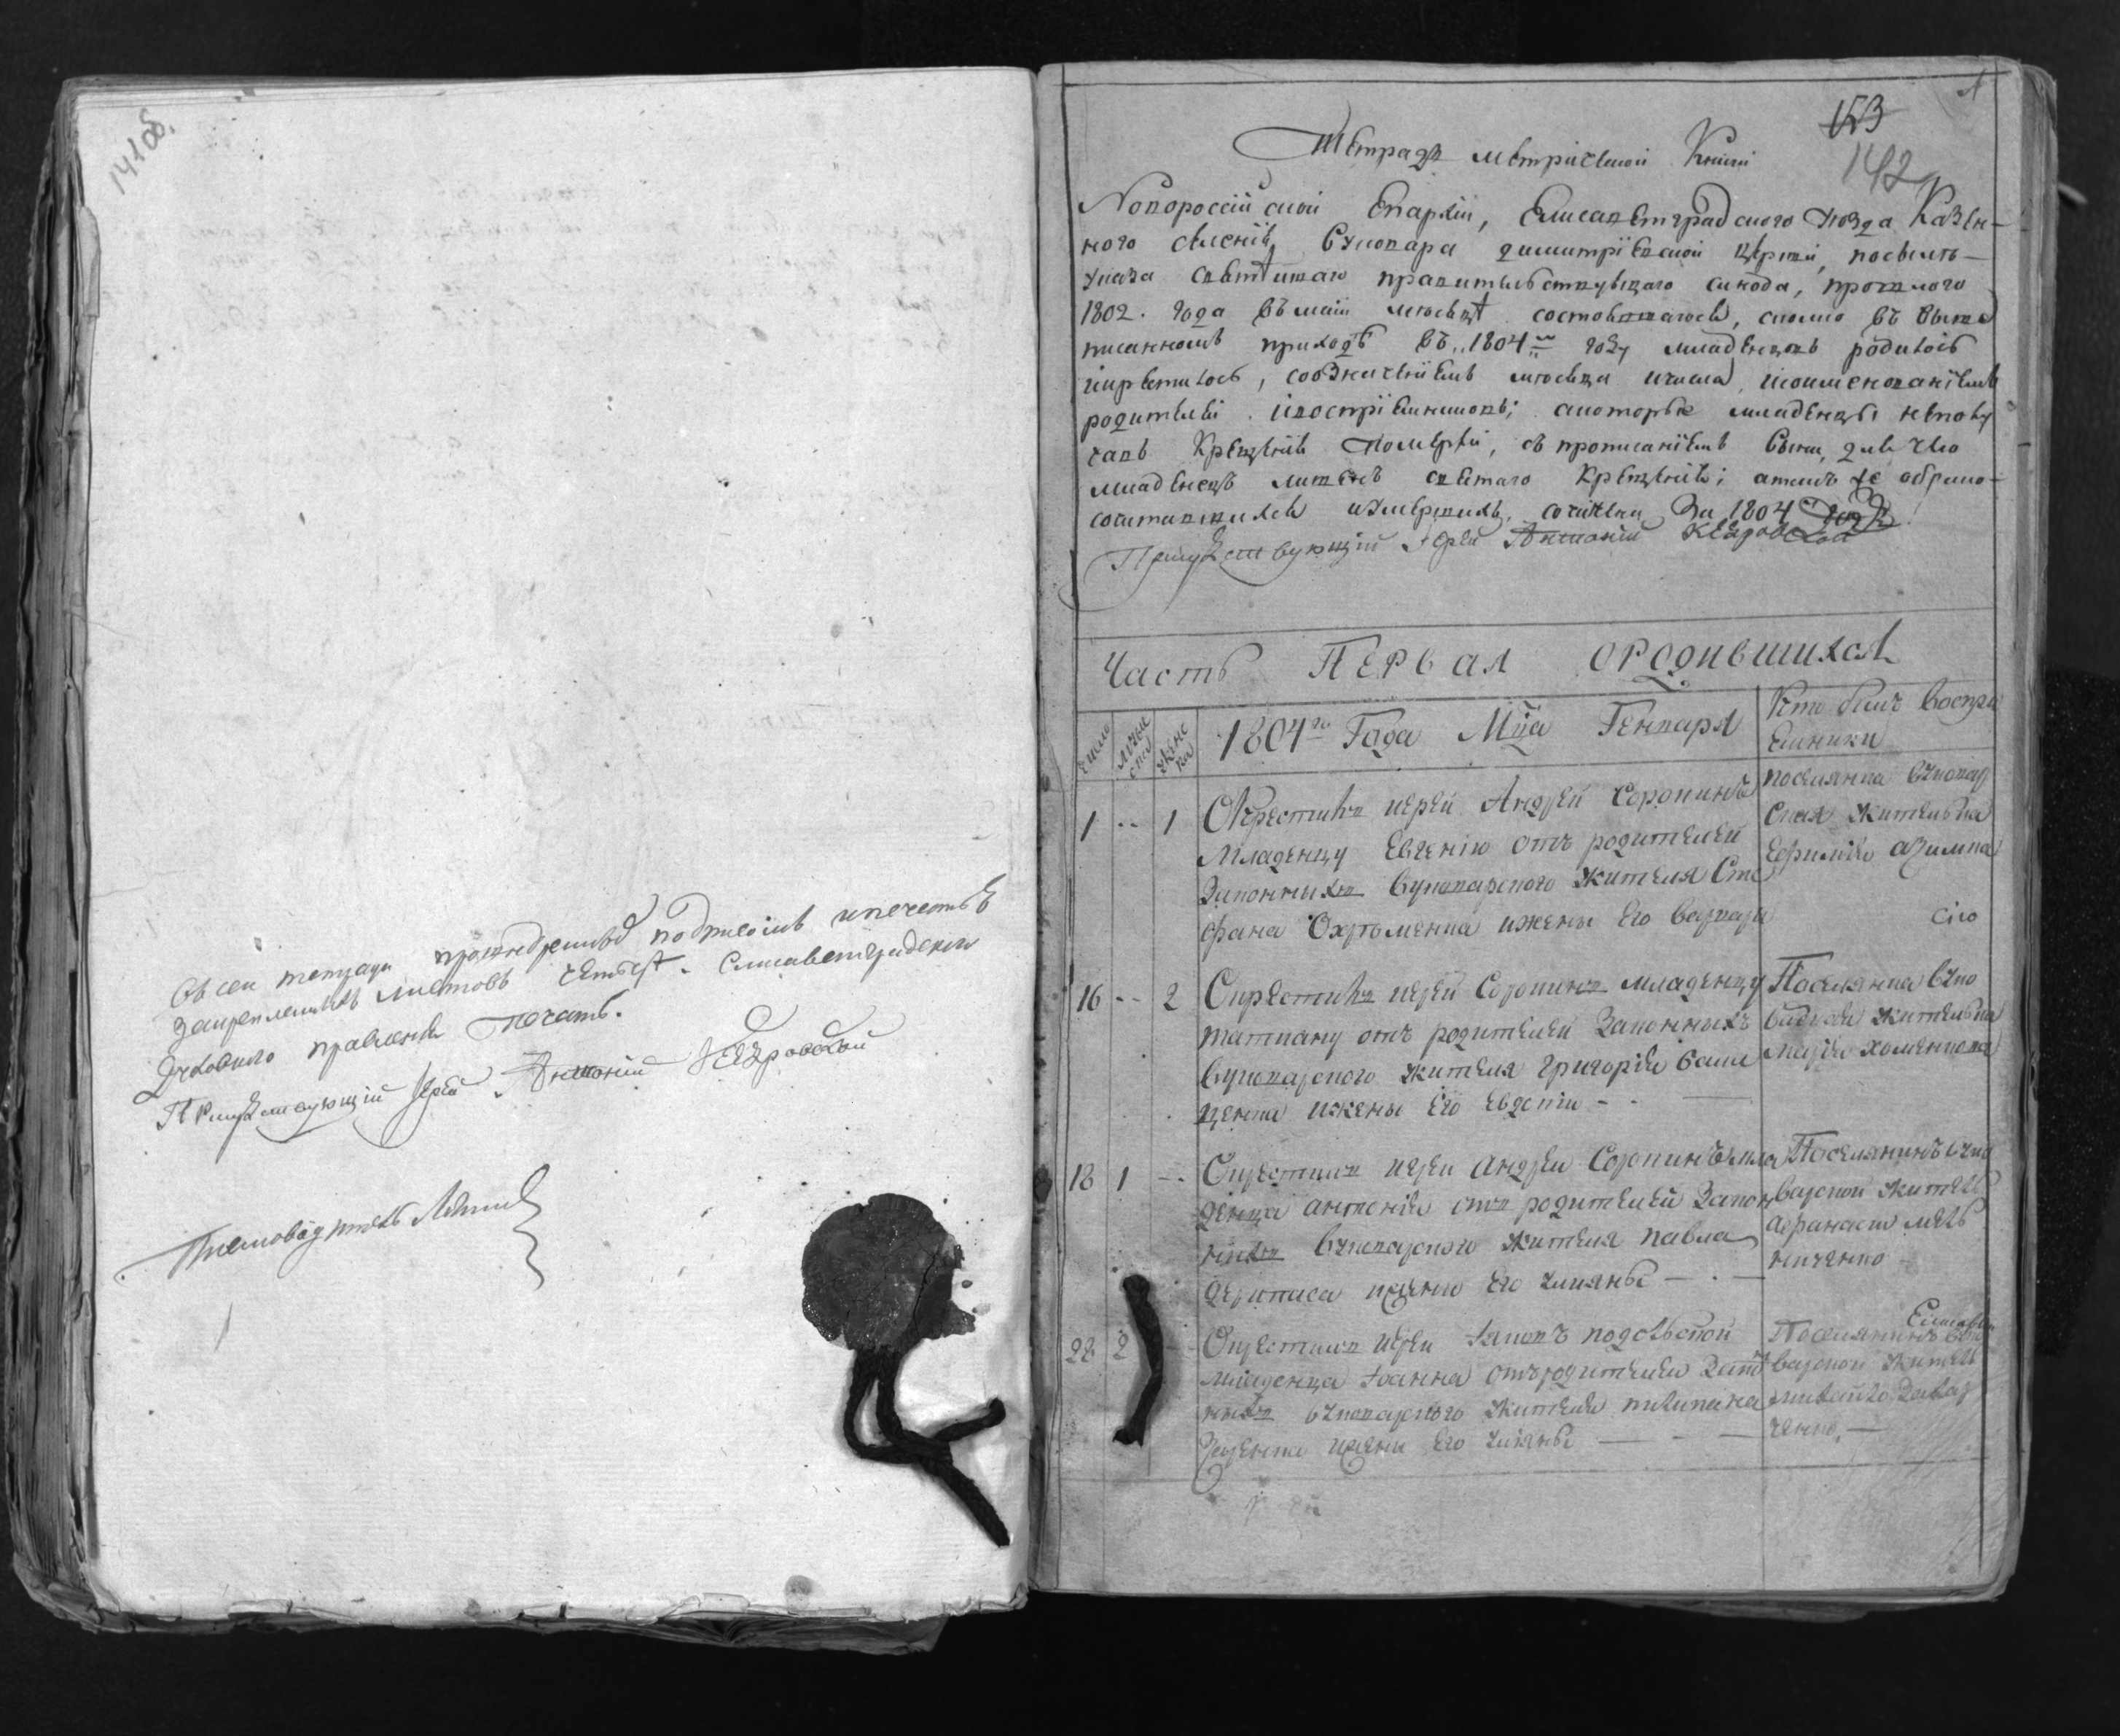 141об.
Въ сей тетради прошнуренной подписомъ и печатью
закрепленныхъ листовъ четыре. Елисаветградского
Духовного правления печать.
Присутствующий Иерей Антоний Кедровский
Писмоводитель
153
142
Тетрадь метрической Книги
Новороссийской Епархии, Елисаветградского уезда Казен-
ного селения Вуковара димитриевской церкви, по силе
указа святейшаго правительствующаго синода, прошлого
1802. года въ маии месяце состоявшагося, сколко въ выше
писанномъ приходе въ 1804м году младенцовъ родилось
и крестилось, со означениемъ месяца и числа, и поименованиемъ
родителей и восприемниковъ; а которые младенцы не полу
чавъ Крещения померли, съ прописаниемъ вины, для чего
младенецъ лишенъ святаго Крещения; а такъ же о брако-
сочитавшихся и умершихъ, сочинена За 1804 годъ
Присутствующий Иерей Антоний Кедровский
Часть ПЕРВАЯ ОРОДИВШИХСЯ
число
мужеска
женска
1804го Года Мца Генваря
Кто были воспри
емники
1 -- 1 Окрестилъ иерей Андрей Соропинъ
Младенцу Евгению отъ родителей
Законныхъ Вуковарского жителя Сте
фана Охртменка и жены его Варвары
поселянка Вуковар
ская жителька
Ефимия
16 -- 2 Окрестилъ иерей Соропинъ младенцу
татиану отъ родителей Законныхъ
Вуковарского жителя григория Ваши
ценка и жены Его Евдокии
Поселянка Вуко
варская жителька
мария хоменкова
18 1 -- Окрестилъ иереи андреи Соропинъ мла
денца антония отъ родителей Закон
ныхъ Вуковарского жителя павла
Дерипаса и жены Его улияны
Поселянинъ Вуко
варской житель
афанасий мель
ниченко
22 2 Окрестилъ иереи Яковъ подольской
младенца Иоанна отъ родителей Закон
ныхъ Вуковарского жителя
и жены Его улияны
Поселянинъ Вуко
варской житель
михайло Захар
ченко.